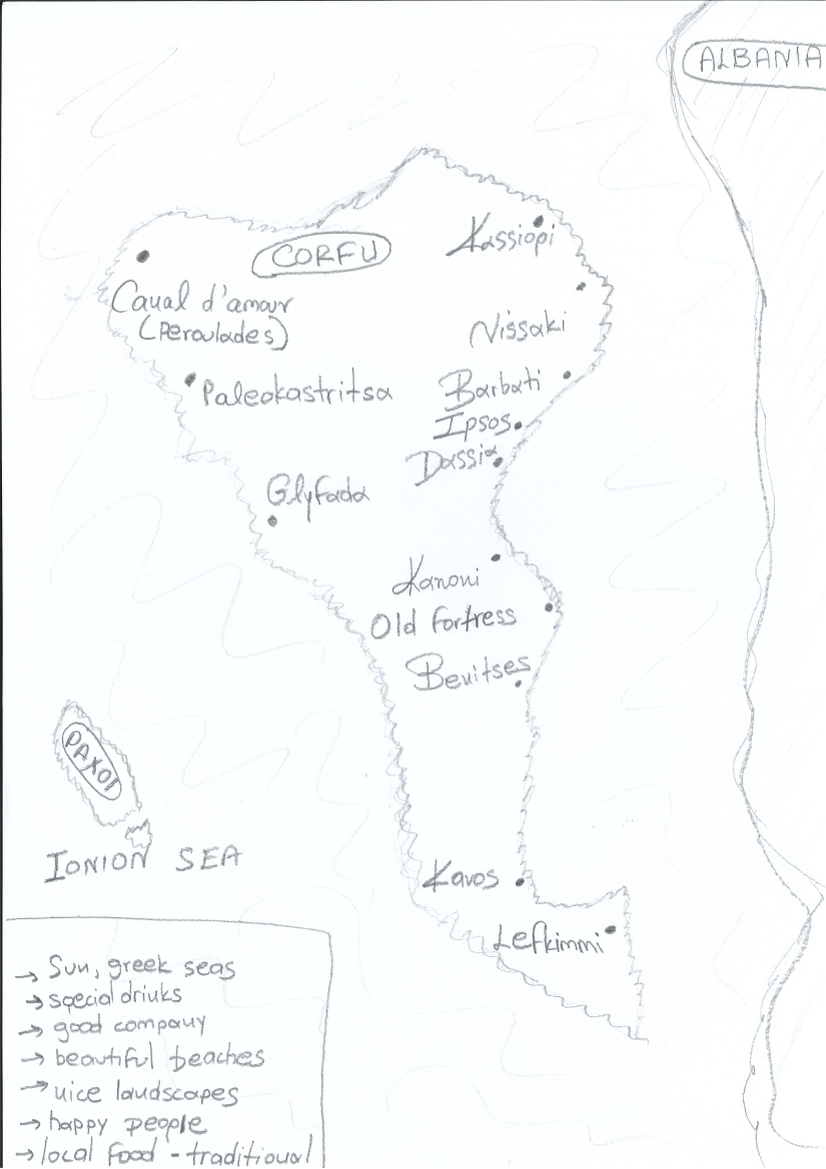 ALBANIA
Kassiopi
CORFU
Canal d'amour
(Peroulades)
Nissaki
Paleokastritsa
Barbati
Ipsos
Dassia
Glyfada
Kanoni
Old fortress
Benitses
PAXOI
IONION SEA
Kavos
Lefkimmi
→ Sun, greek seas
→ special drinks
→ good company
→ beautiful beaches
→ nice landscapes
→ happy people
→ local food - traditional